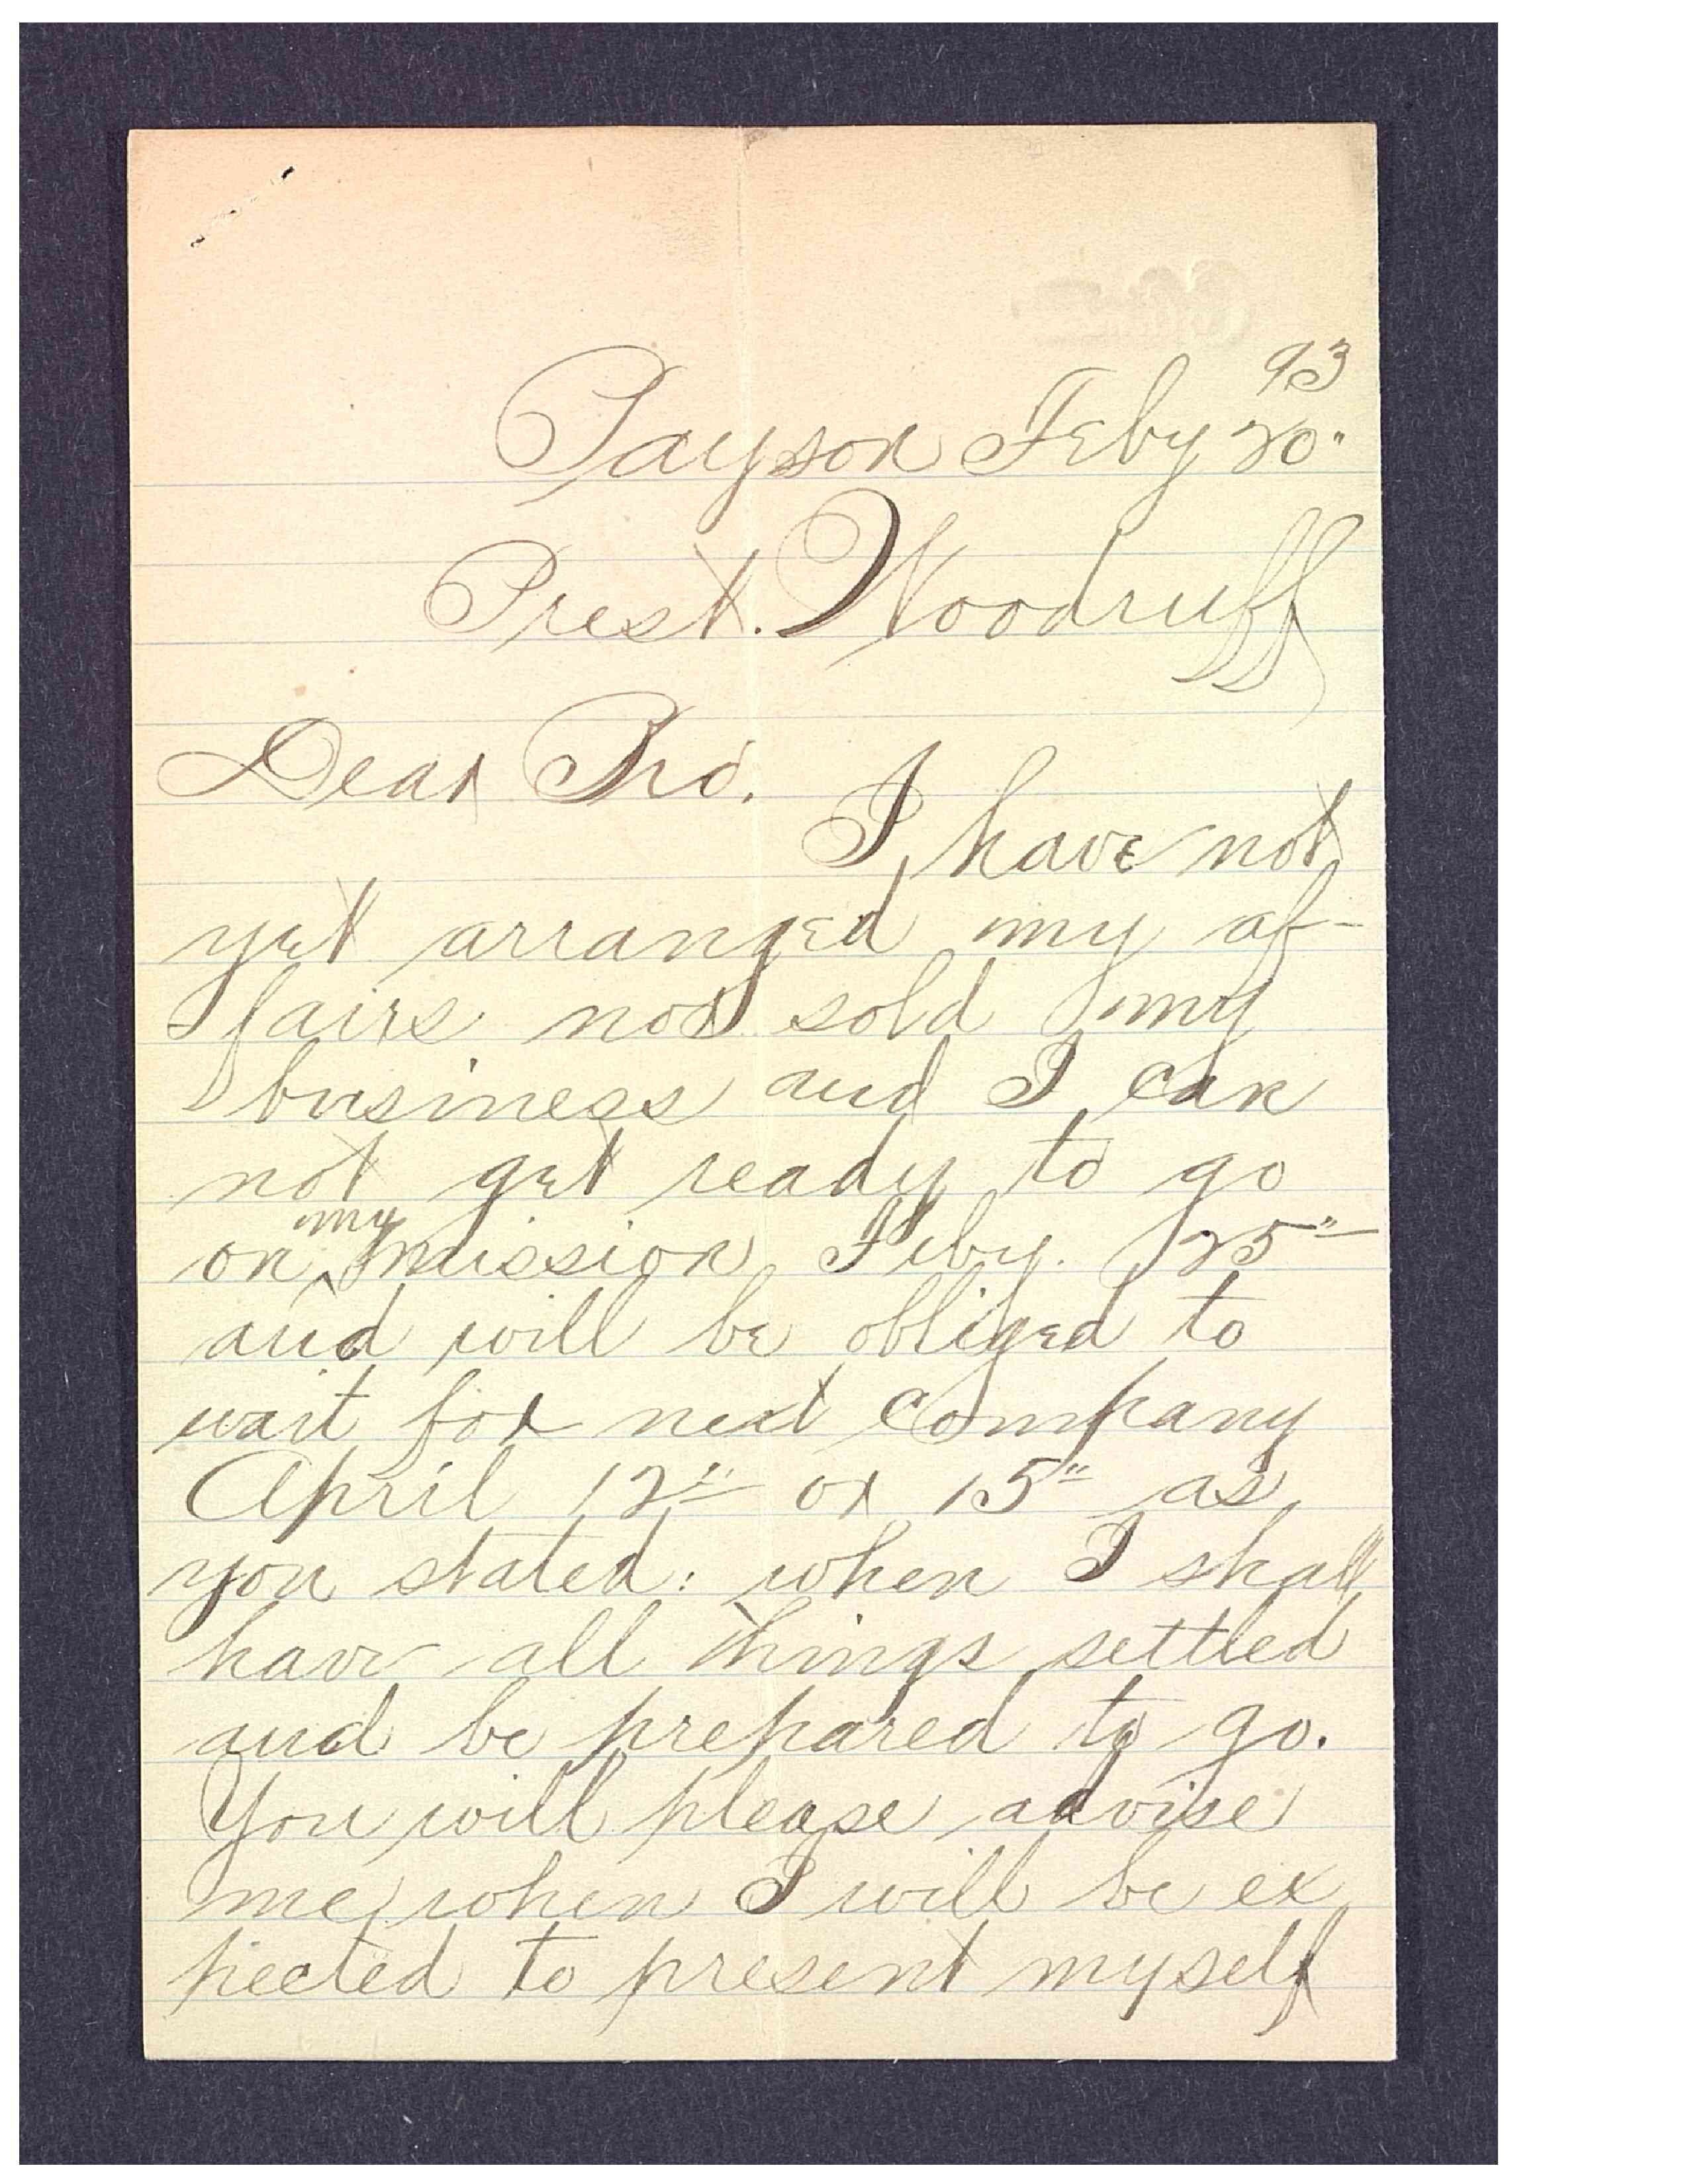 93
Payson Feby 20"
Prest. Woodruff
Dear Bro.
I have not
yet arranged my af-
fairs nor sold my
business and I can
not get ready to go
my
on ^ mission Feby. 25"
and will be obliged to
wait for next company
April 12" or 15" as
you stated: when I shall
have all things settled
and be prepared to go.
You will please advise
me when I will be ex
pected to present myself